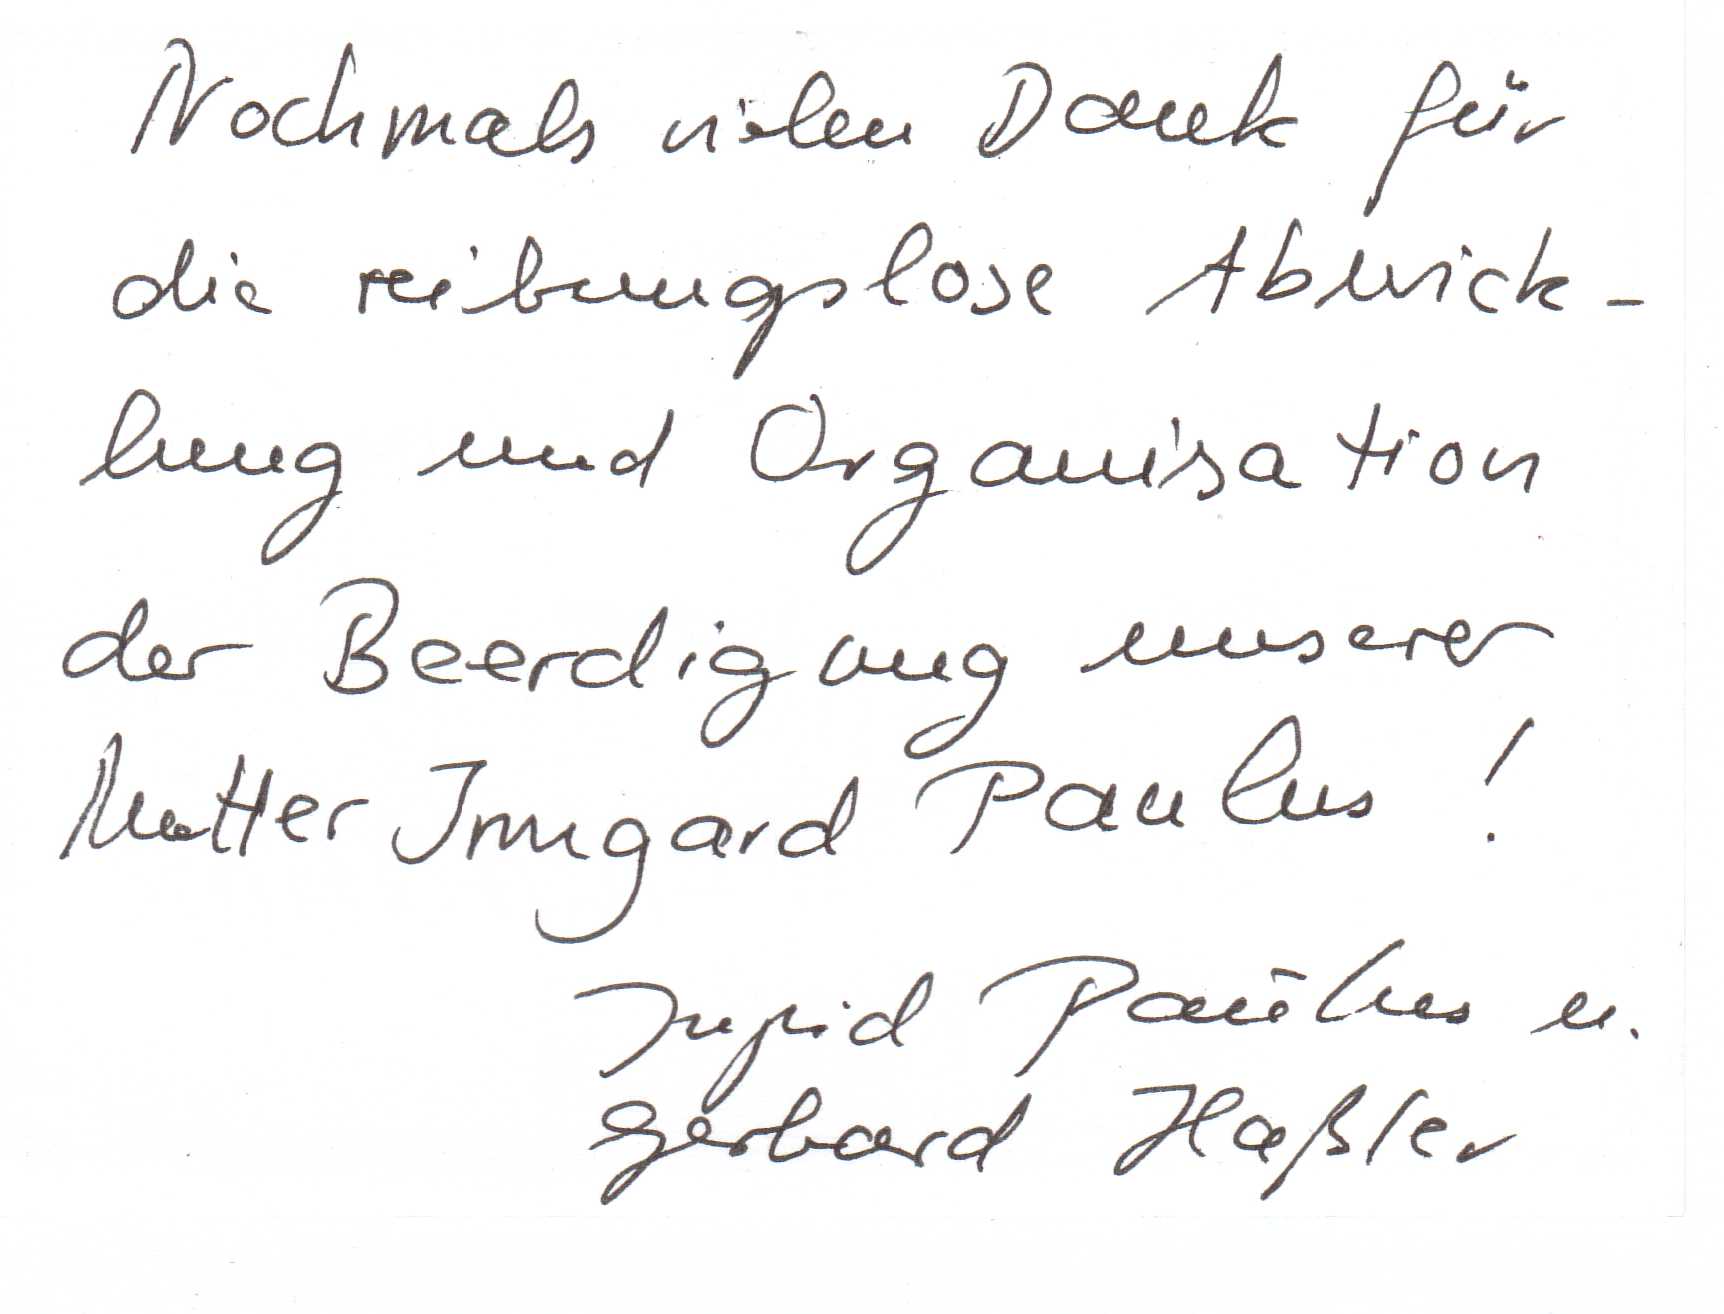 Nochmals vielen Dank für
die reibungslose Abwick-
lung und Organisation
der Beerdigung unserer
Mutter Irmgard Paulus!
Ingrid Paulus u.
Gerhard Haßler